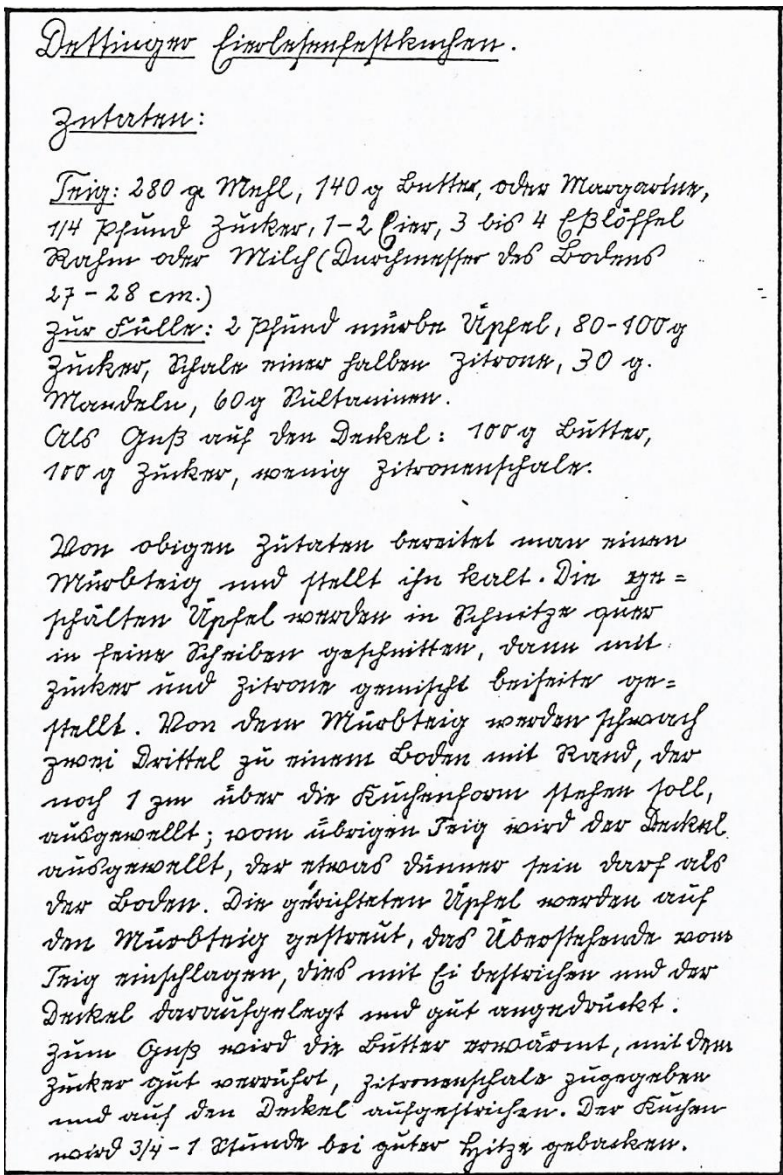 Dettinger Eierlesenfestkuchen.
Zutaten:
Teig: 280 g Mehl, 140 g Butter, oder Margarine,
1/4 Pfund Zucker, 1-2 Eier, 3 bis 4 Eßlöffel
Rahm oder Milch (Durchmesser des Bodens
27 - 28 cm.)
Zur Fülle: 2 Pfund mürbe Äpfel, 80-100 g
Zucker, Schale einer halben Zitrone, 30 g.
Mandeln, 60 g Sultaninen.
Als Guß auf den Deckel: 100 g Butter,
100 g Zucker, wenig Zitronenschale.
Von obigen Zutaten bereitet man einen
Mürbteig und stellt ihn kalt. Die ge=
schälten Äpfel werden in Schnitze quer
in feine Scheiben geschnitten, dann mit
Zucker und Zitrone gemischt beiseite ge=
stellt. Von dem Mürbteig werden schwach
zwei Drittel zu einem Boden mit Rand, der
noch 1 zm über die Kuchenform stehen soll,
ausgewellt; vom übrigen Teig wird der Deckel
ausgewellt, der etwas dünner sein darf als
der Boden. Die gerichteten Äpfel werden auf
den Mürbteig gestreut, das Überstehende vom
Teig einschlagen, dies mit Ei bestrichen und der
Deckel daraufgelegt und gut angedrückt.
Zum Guß wird die Butter erwärmt, mit dem
Zucker gut verrührt, Zitronenschale zugegeben
und auf den Deckel aufgestrichen. Der Kuchen
wird 3/4 - 1 Stunde bei guter Hitze gebacken.